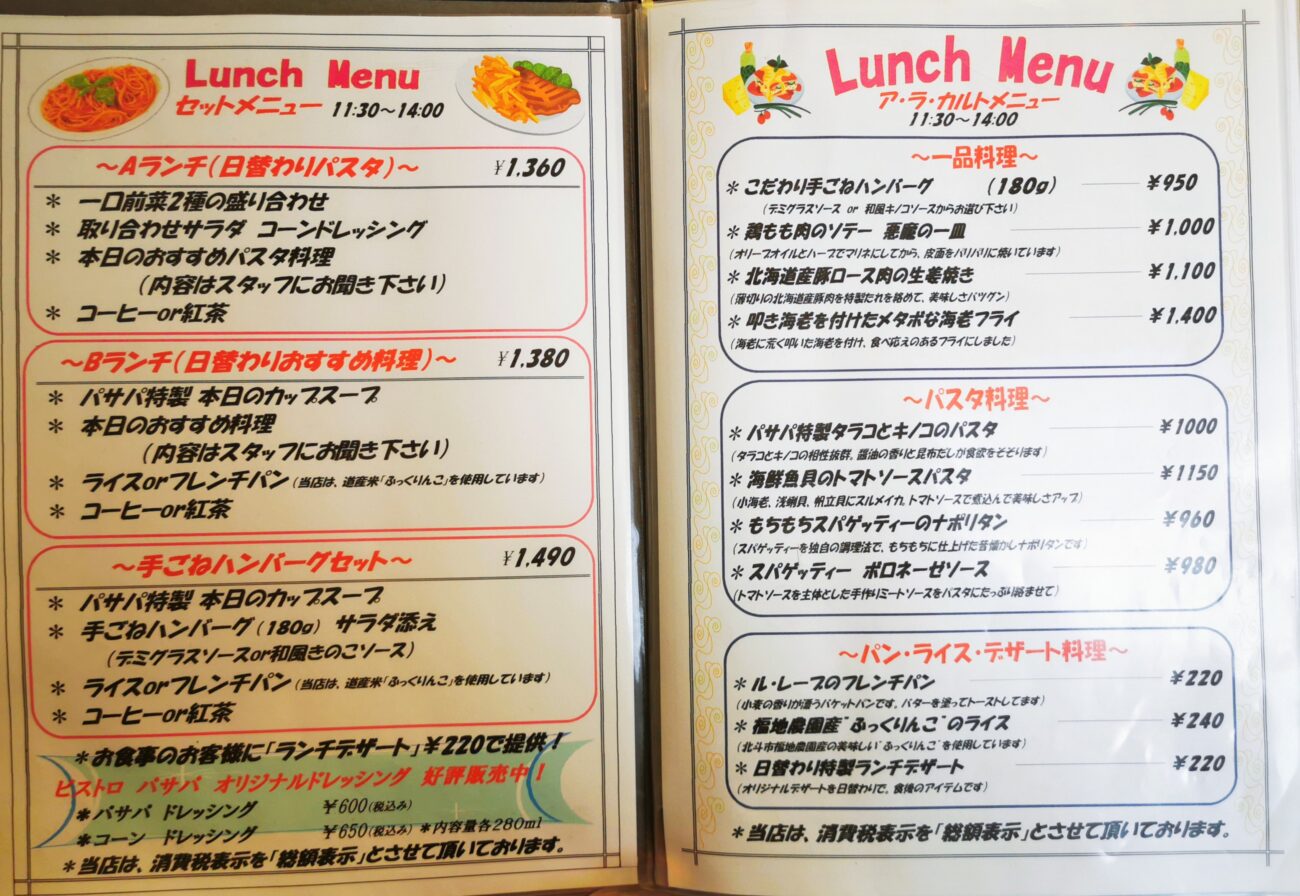 Lunch Menu
セットメニュー 11:30～14:00
～Aランチ(日替わりパスタ)～ ¥1,360
* 一口前菜2種の盛り合わせ
* 取り合わせサラダ コーンドレッシング
* 本日のおすすめパスタ料理
(内容はスタッフにお聞き下さい)
* コーヒーor紅茶
～Bランチ(日替わりおすすめ料理)～ ¥1,380
* パサパ特製 本日のカップスープ
* 本日のおすすめ料理
(内容はスタッフにお聞き下さい)
* ライスorフレンチパン(当店は、道産米「ふっくりんこ」を使用しています)
* コーヒーor紅茶
～手ごねハンバーグセット～ ¥1,490
* パサパ特製 本日のカップスープ
* 手ごねハンバーグ(180g) サラダ添え
(デミグラスソースor和風きのこソース)
* ライスorフレンチパン(当店は、道産米「ふっくりんこ」を使用しています)
* コーヒーor紅茶
*お食事のお客様に「ランチデザート」¥220で提供!
ビストロ パサパ オリジナルドレッシング 好評販売中!
*パサパ ドレッシング ¥600(税込み)
*コーン ドレッシング ¥650(税込み) *内容量各280ml
*当店は、消費税表示を「総額表示」とさせて頂いております。
Lunch Menu
ア・ラ・カルトメニュー
11:30～14:00
～一品料理～
*こだわり手ごねハンバーグ (180g) ¥950
(デミグラスソース or 和風キノコソースからお選び下さい)
*鶏もも肉のソテー 悪魔の一皿 ¥1.000
(オリーブオイルとハーブでマリネにしてから、皮面をパリパリに焼いています)
*北海道産豚ロース肉の生姜焼き ¥1.100
(薄切りの北海道産豚肉を特製たれを絡めて、美味しさバツグン)
*叩き海老を付けたメタボな海老フライ ¥1.400
(海老に荒く叩いた海老を付け、食べ応えのあるフライにしました)
～パスタ料理～
*パサパ特製タラコとキノコのパスタ ¥1000
(タラコとキノコの相性抜群。醤油の香りと昆布だしが食欲をそそります)
*海鮮魚貝のトマトソースパスタ ¥1150
(小海老、浅蜊貝、帆立貝にスルメイカ、トマトソースで煮込んで美味しさアップ)
*もちもちスパゲッティーのナポリタン ¥960
(スパゲッティーを独自の調理法で、もちもちに仕上げた昔懐かしナポリタンです)
*スパゲッティー ボロネーゼソース ¥980
(トマトソースを主体とした手作りミートソースをパスタにたっぷり絡ませて)
～パン・ライス・デザート料理～
*ル・レーブのフレンチパン ¥220
(小麦の香りが漂うバケットパンです。バターを塗ってトーストしてます)
*福地農園産"ふっくりんご"のライス ¥240
(北斗市福地農園産の美味しい"ふっくりんご"を使用しています)
*日替わり特製ランチデザート ¥220
(オリジナルデザートを日替わりで。食後のアイテムです)
*当店は、消費税表示を「総額表示」とさせて頂いております。